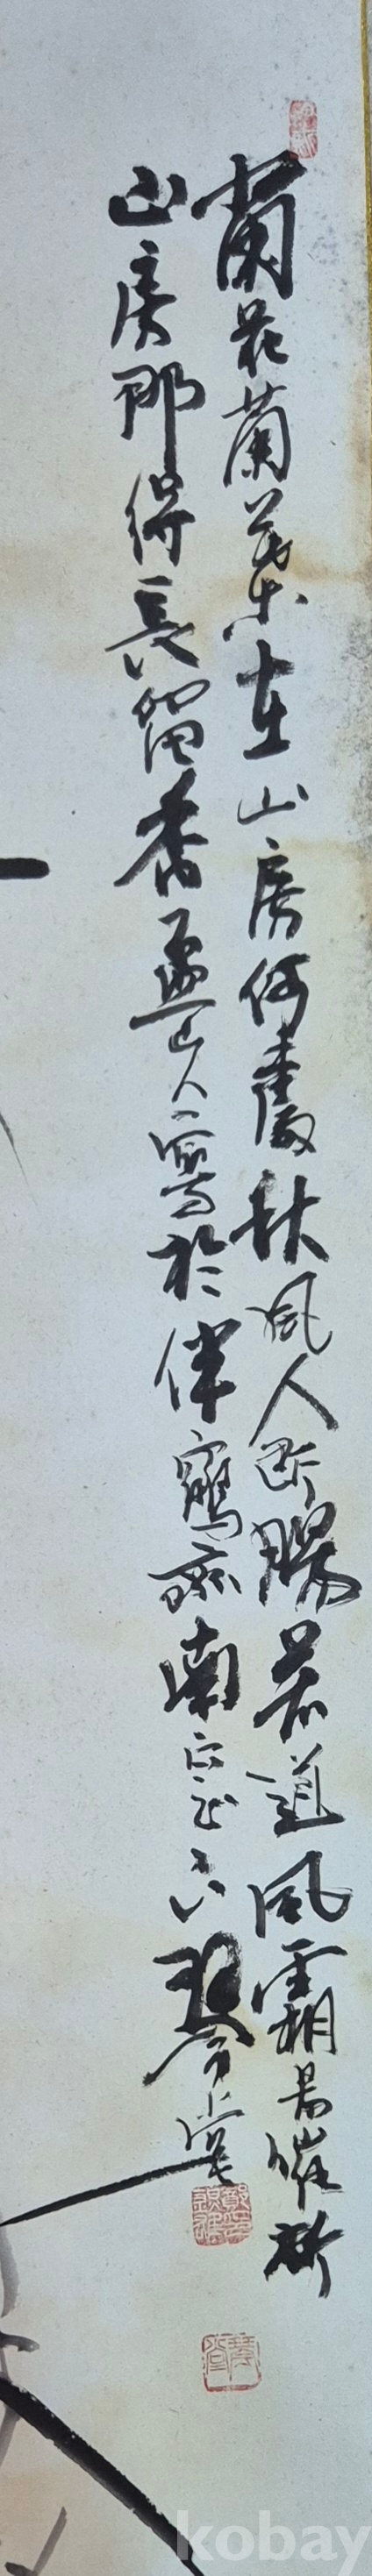 蘭花蘭葉在山房何處秋風人斷腸若道風霜易摧折
山房那得長留香山人寫於伴鶴齋南窓下琴堂
kobay